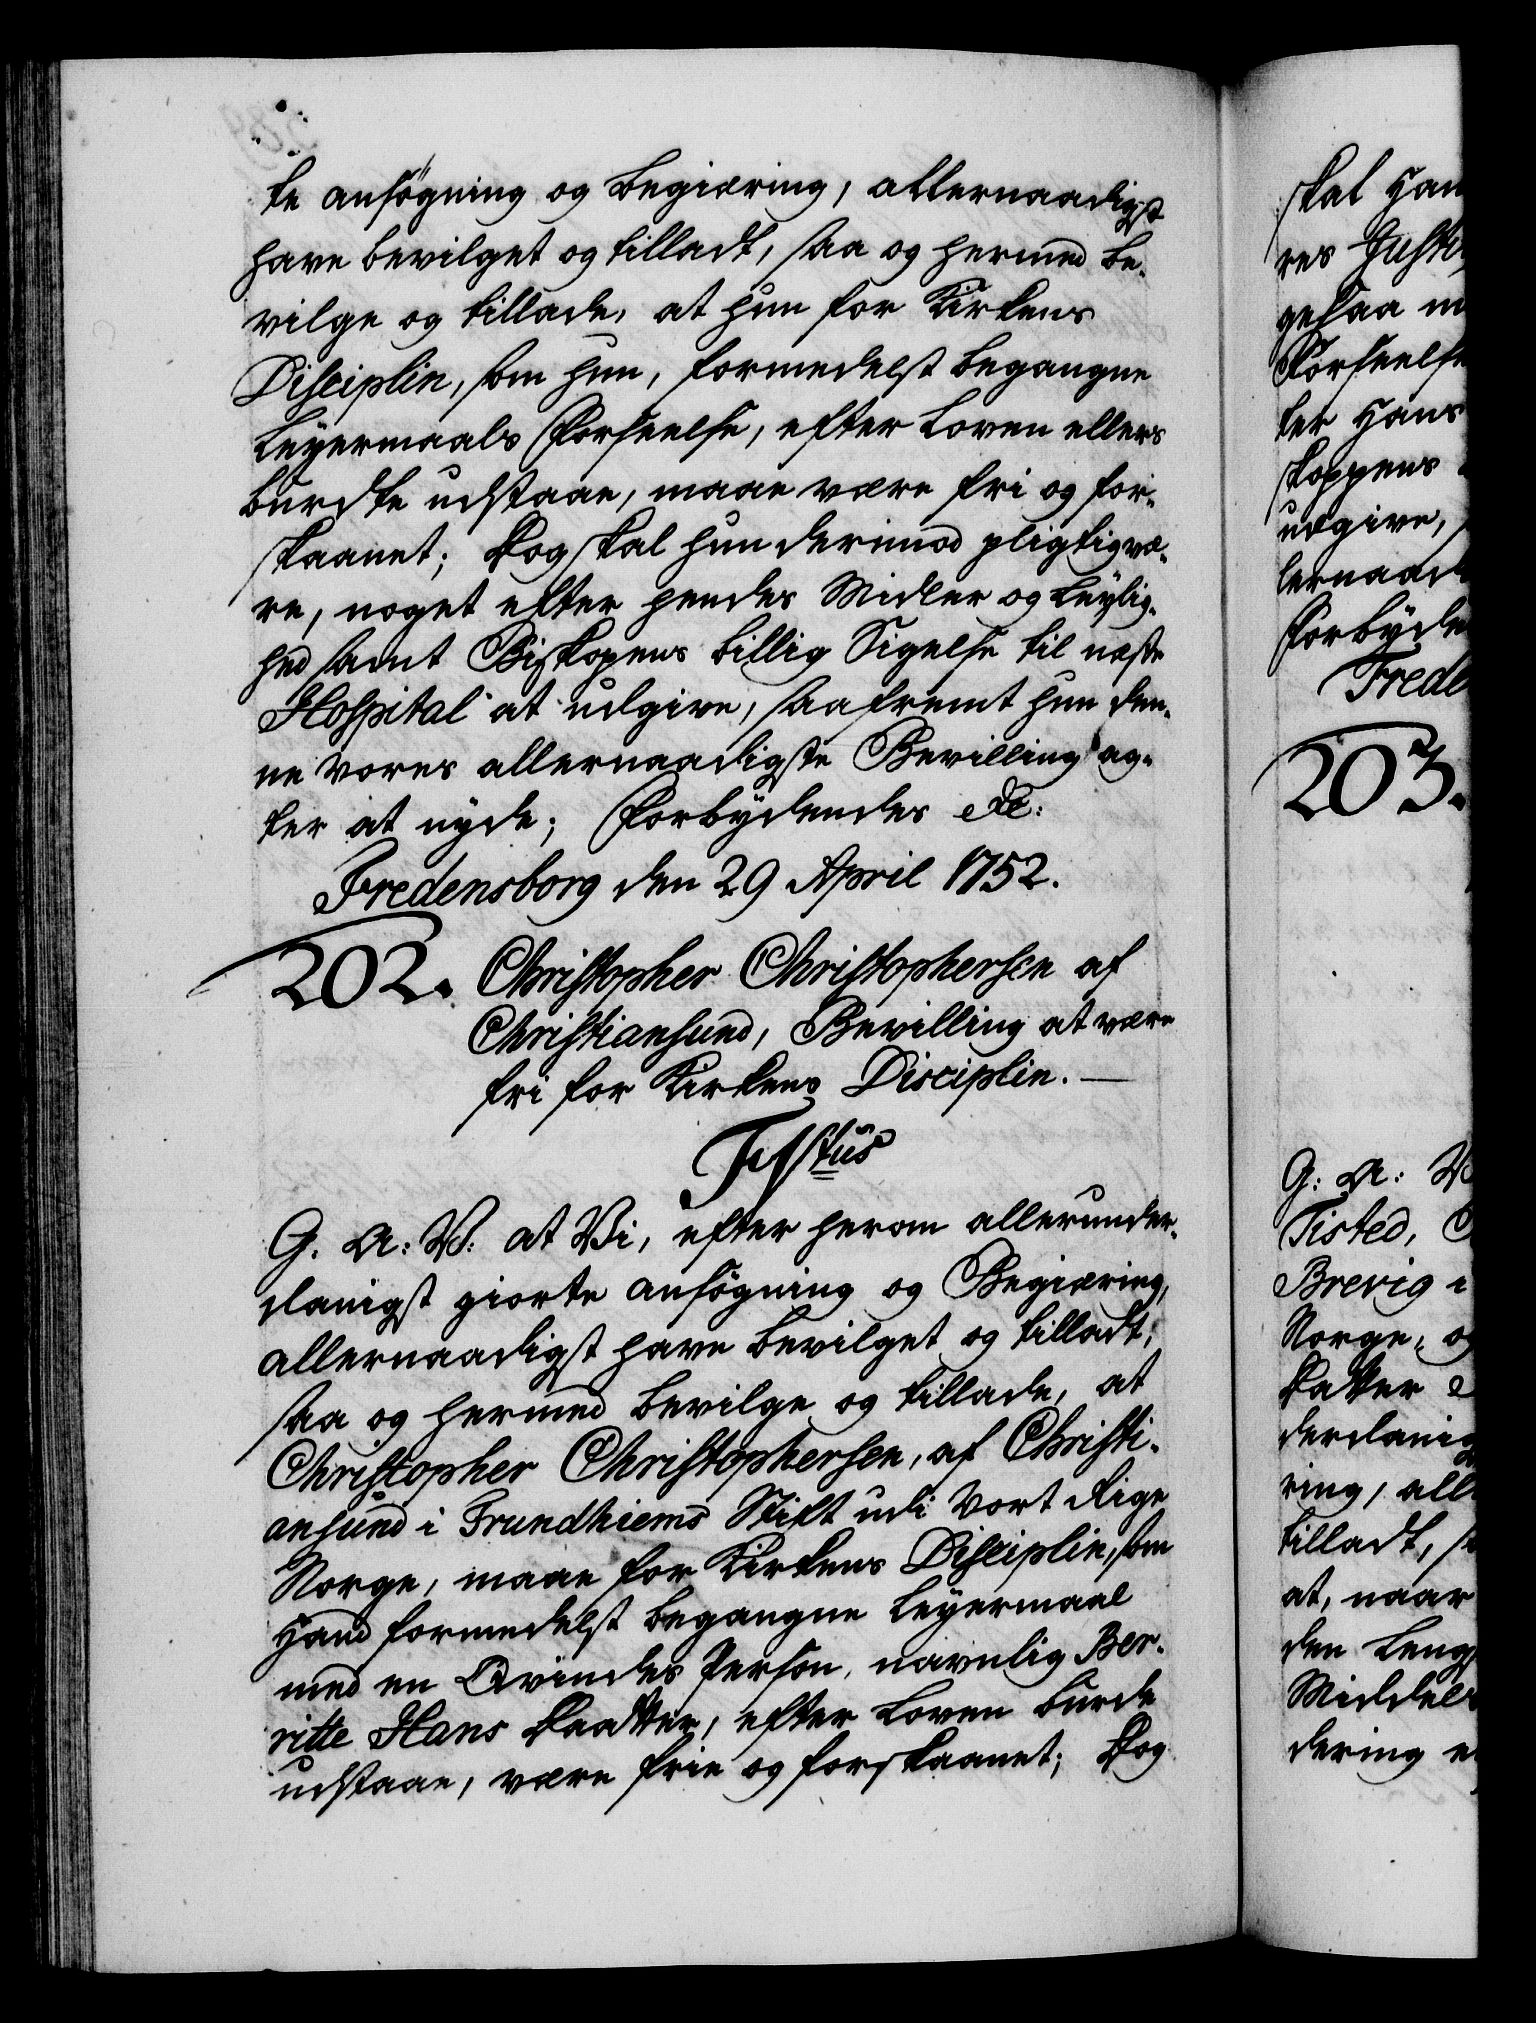 te ansøgning og begiæring, allernaadigst
have bevilget og tilladt, saa og hermed be-
vilge og tillade, at hun for Kirkens
Disciplin, som hun, formedelst begangne
Leyermaals Forseelse, efter Loven ellers
burdte udstaae, maae være fri og for-
skaanet; Dog skal hun derimod pligtig væ-
re, noget efter hendes Midler og Leylig-
hed samt Biskopens billig Sigelse til næste
Hospital at udgive, saafremt hun den-
ne vores allernaadigste Bevilling ag-
ter at nyde; Forbydendes etc:
Fredensborg den 29 April 1752.
202. Christopher Christophersen af
Christiansund, Bevilling at være
fri for Kirkens Disciplin. —
Festus
G. A: V: at Vi, efter herom allerunder-
danigst giorte ansøgning og Begiæring,
allernaadigst have bevilget og tilladt,
saa og hermed bevilge og tillade, at
Christopher Christophersen, af Christi-
ansund i Trundhiems Stift udi Vort Rige
Norge, maae for Kirkens Disciplin, som
Hand formedelst begangne Leyermaal
med en Qvindes Person, navnlig Ber-
ritte Hans Daatter, efter Loven burde
udstaae, være frie og forskaanet; Dog
skal Han
res
gesaa
Forseelse
ter Hans
skoppens
udgive,
lernaad
Forbyde
Frede
203.
G: A: V
Tisted,
Brevig i
Norge, og
Datter
derdanig
ring, alle
tilladt, s
at, naar
den
Middels
dering